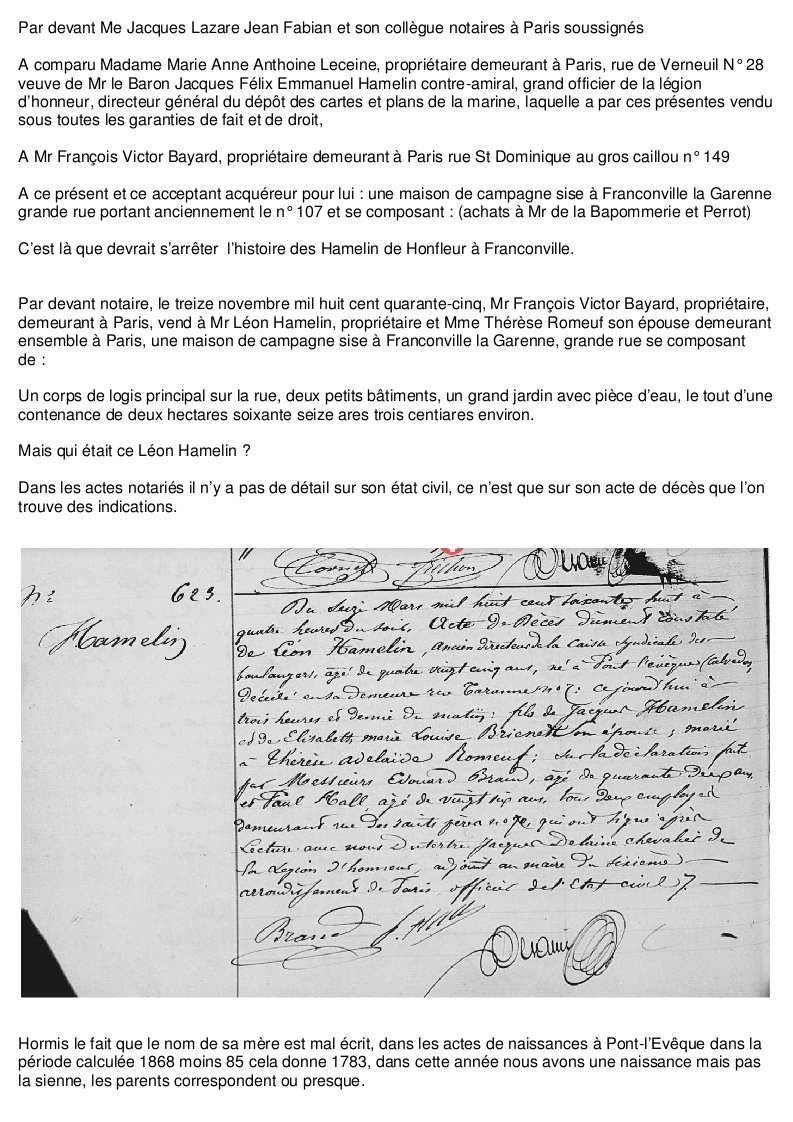 Par devant Me Jacques Lazare Jean Fabian et son collègue notaires à Paris soussignés
A comparu Madame Marie Anne Anthoine Leceine, propriétaire demeurant à Paris, rue de Verneuil N° 28
veuve de Mr le Baron Jacques Félix Emmanuel Hamelin contre-amiral, grand officier de la légion
d'honneur, directeur général du dépôt des cartes et plans de la marine, laquelle a par ces présentes vendu
sous toutes les garanties de fait et de droit,
A Mr François Victor Bayard, propriétaire demeurant à Paris rue St Dominique au gros caillou n° 149
A ce présent et ce acceptant acquéreur pour lui : une maison de campagne sise à Franconville la Garenne
grande rue portant anciennement le n° 107 et se composant : (achats à Mr de la Bapommerie et Perrot)
C'est là que devrait s'arrêter l'histoire des Hamelin de Honfleur à Franconville.
Par devant notaire, le treize novembre mil huit cent quarante-cinq, Mr François Victor Bayard, propriétaire,
demeurant à Paris, vend à Mr Léon Hamelin, propriétaire et Mme Thérèse Romeuf son épouse demeurant
ensemble à Paris, une maison de campagne sise à Franconville la Garenne, grande rue se composant
de :
Un corps de logis principal sur la rue, deux petits bâtiments, un grand jardin avec pièce d'eau, le tout d'une
contenance de deux hectares soixante seize ares trois centiares environ.
Mais qui était ce Léon Hamelin ?
Dans les actes notariés il n'y a pas de détail sur son état civil, ce n'est que sur son acte de décès que l'on
trouve des indications.
Cornet
N° 623.
Hamelin
Du Seize Mars mil huit cent soixante huit à
quatre heures du soir. Acte de Décès dûment constaté
de Léon Hamelin, ancien directeur de la caisse syndicale des
boulangers, âgé de quatre vingt cinq ans, né à Pont l'évêque (Calvados,
Décédé en sa demeure rue Taranne n° 7: cejourd'hui à
trois heures et demie du matin: fils de Jacques Hamelin
et de Elisabeth marie Louise son épouse; marié
à Thérèse adelaïde Romeuf; sur la déclaration fait
par Messieurs Edouard Braud, âgé de quarante deux ans,
et Paul Hall, âgé de vingt six ans, tous deux employés
demeurant rue des saints pères n° 70, qui ont signé après
Lecture avec nous Dutertre Jacques chevalier de
la Légion d'honneur, adjoint au maire du sixième
arrondissement de Paris, officier de l'Etat civil
Braud P. Hall
Hormis le fait que le nom de sa mère est mal écrit, dans les actes de naissances à Pont-l'Evêque dans la
période calculée 1868 moins 85 cela donne 1783, dans cette année nous avons une naissance mais pas
la sienne, les parents correspondent ou presque.